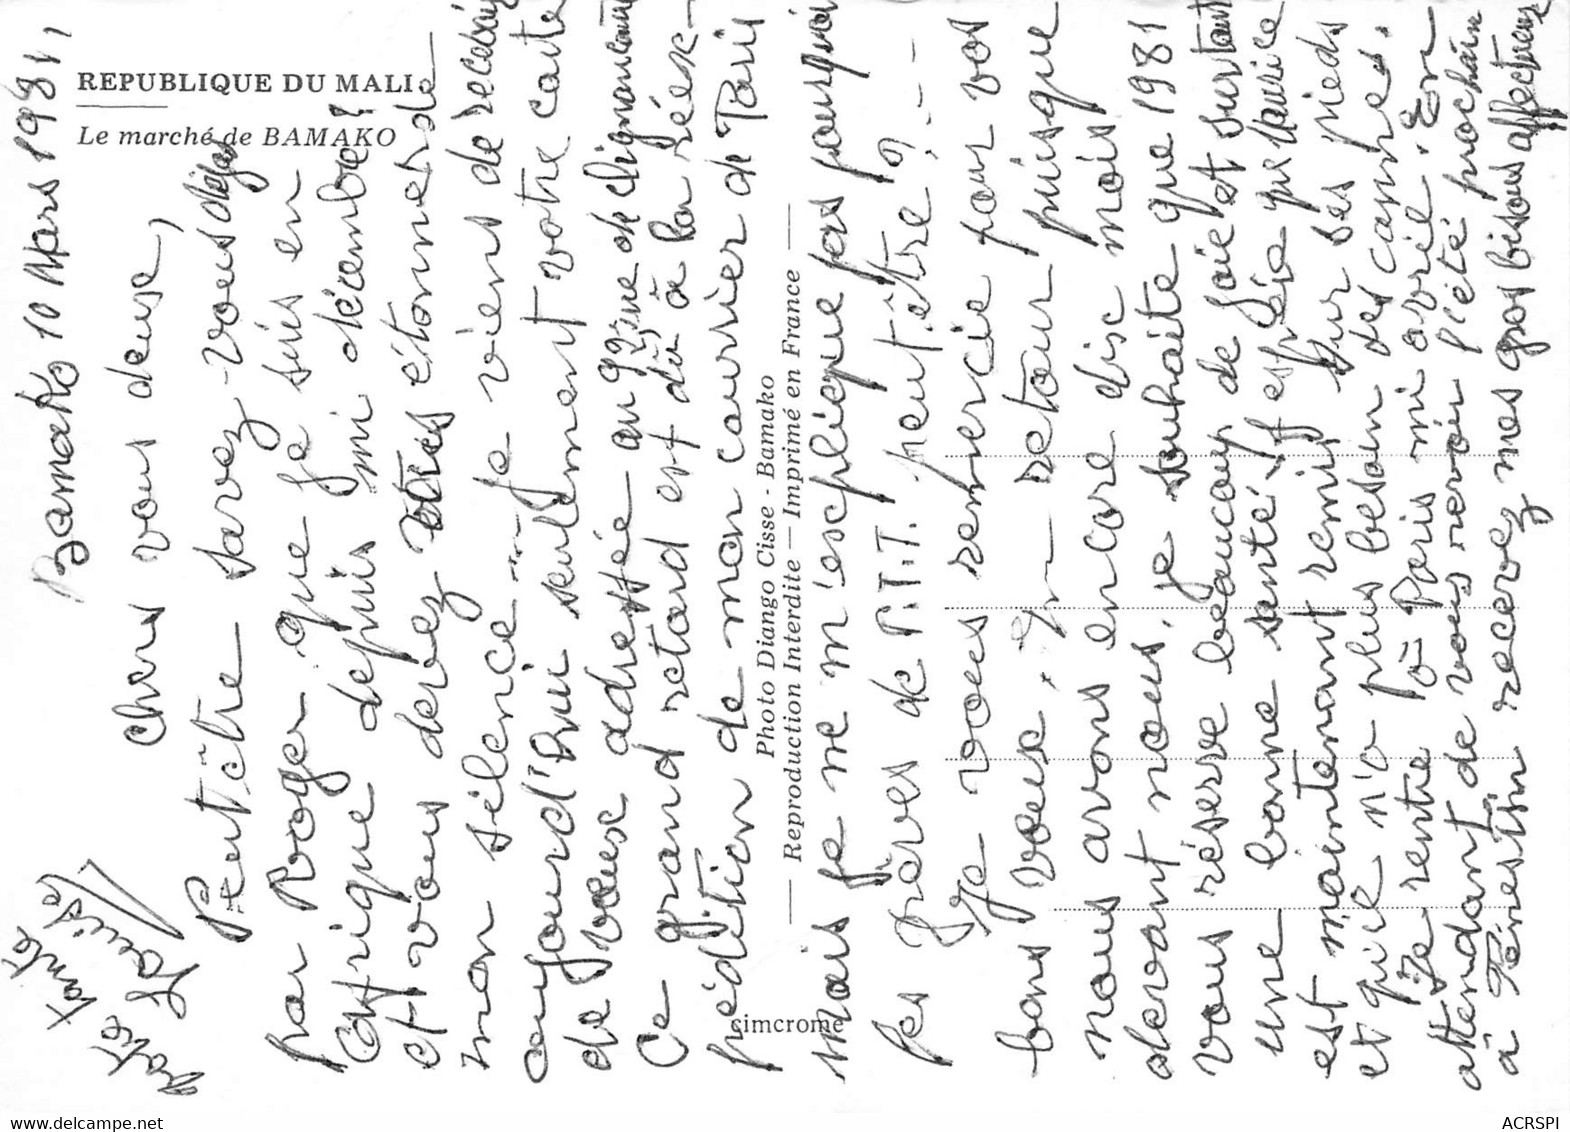 REPUBLIQUE DU MALI
Le marché de BAMAKO
Photo Diango Cisse - Bamako
Reproduction Interdite — Imprimé en France
cimcrome
Bamako 10 Mars 1981,
Chers vous deux,
Peut-être savez-vous déjà
par Roger que je suis en
Afrique depuis mi décembre !
et vous devez être étonnés de
mon silence... Je viens de recevoir
aujourd'hui seulement votre carte
de vœux adressée au 9 rue de Clignancourt
Ce grand retard est dû à la réex-
pédition de mon courrier de Paris
mais je ne m'explique pas pourquoi
les grèves de P.T.T. peut-être ? ---
Je vous remercie pour vos
bons vœux, en retour puisque
nous avons encore dix mois
devant nous, je souhaite que 1981
vous réserve beaucoup de joie et surtout
une bonne santé, j'espère que Maurice
est maintenant remis sur ses pieds
et qu'il n'a plus besoin des cannes.
Je rentre à Paris mi avril. En
attendant de vous revoir l'été prochain
à Ténestin recevez mes gros bisous affectueux
Louise
ACRSPI